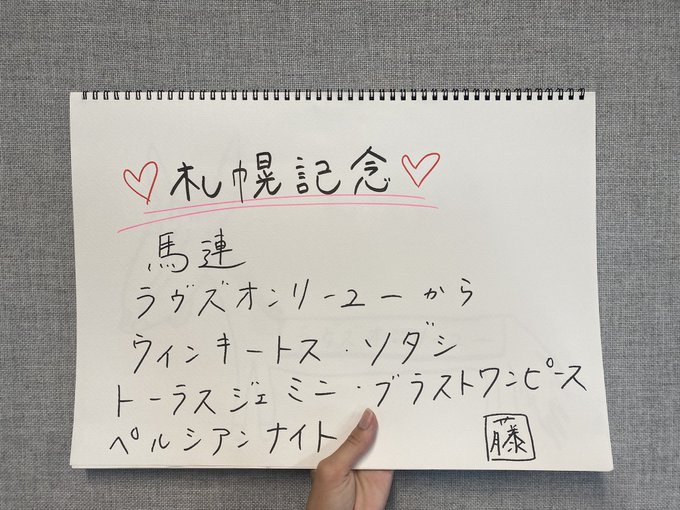 ♡札幌記念♡
馬連
ラヴズオンリーユーから
ウィンキートス・ソダシ
トーラスジェミニ・ブラストワンピース
ペルシアンナイト
藤